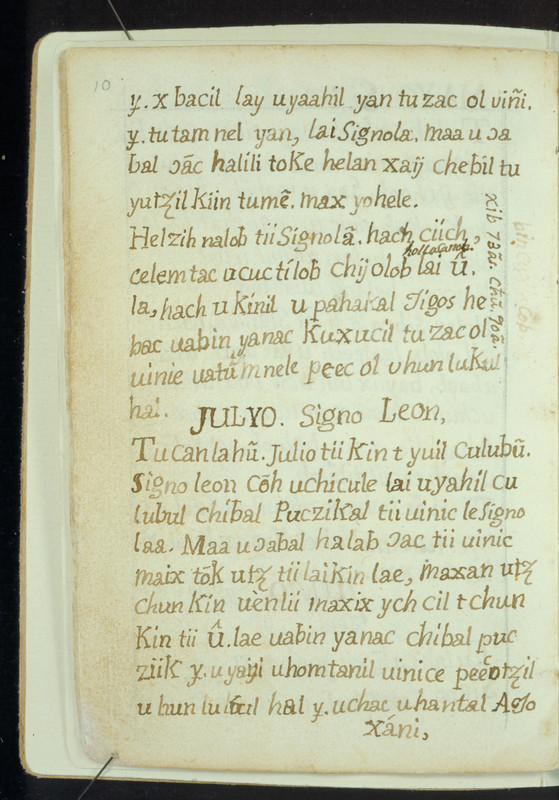 10
ɏ. x bacil lay uyaahil yan tu zac ol viñi.
ɏ. tu tam nel yan, lai Signola. maa u ɔa
bal ɔāc halili toke helan xaij chebil tu
yutzil kiin tumē. max yohele.
Helzih nalob tii Signolā. hach ciich,
celemtac ucuctilob chij olob lai û.
la, hach u kinil u pahakal Tigos he
bac uabin yanac kuxucil tu zac ol
uinie uatū mnele peec ol uhun lukul
hal.
JULYO. Signo Leon,
Tu canlahū. Julio tii Kin t yuil Culubū.
Signo leon Cōh uchicule lai uyahil cu
lubul chibal Puczikal tii uinic le Signo
laa. Maa u ɔabal halab ɔac tii uinic
maix tōk utz tii lai kin lae, maxan utz
chun kin uènlii maxix ych cil t chun
Kin tii û. lae uabin yanac chibal puc
ziik ɏ. u yaiji uhomtanil uinice peecotzil
u hun lukul hal ɏ. uchac uhantal Aglo
xáni,
xib 73ā. chū. 90ā.